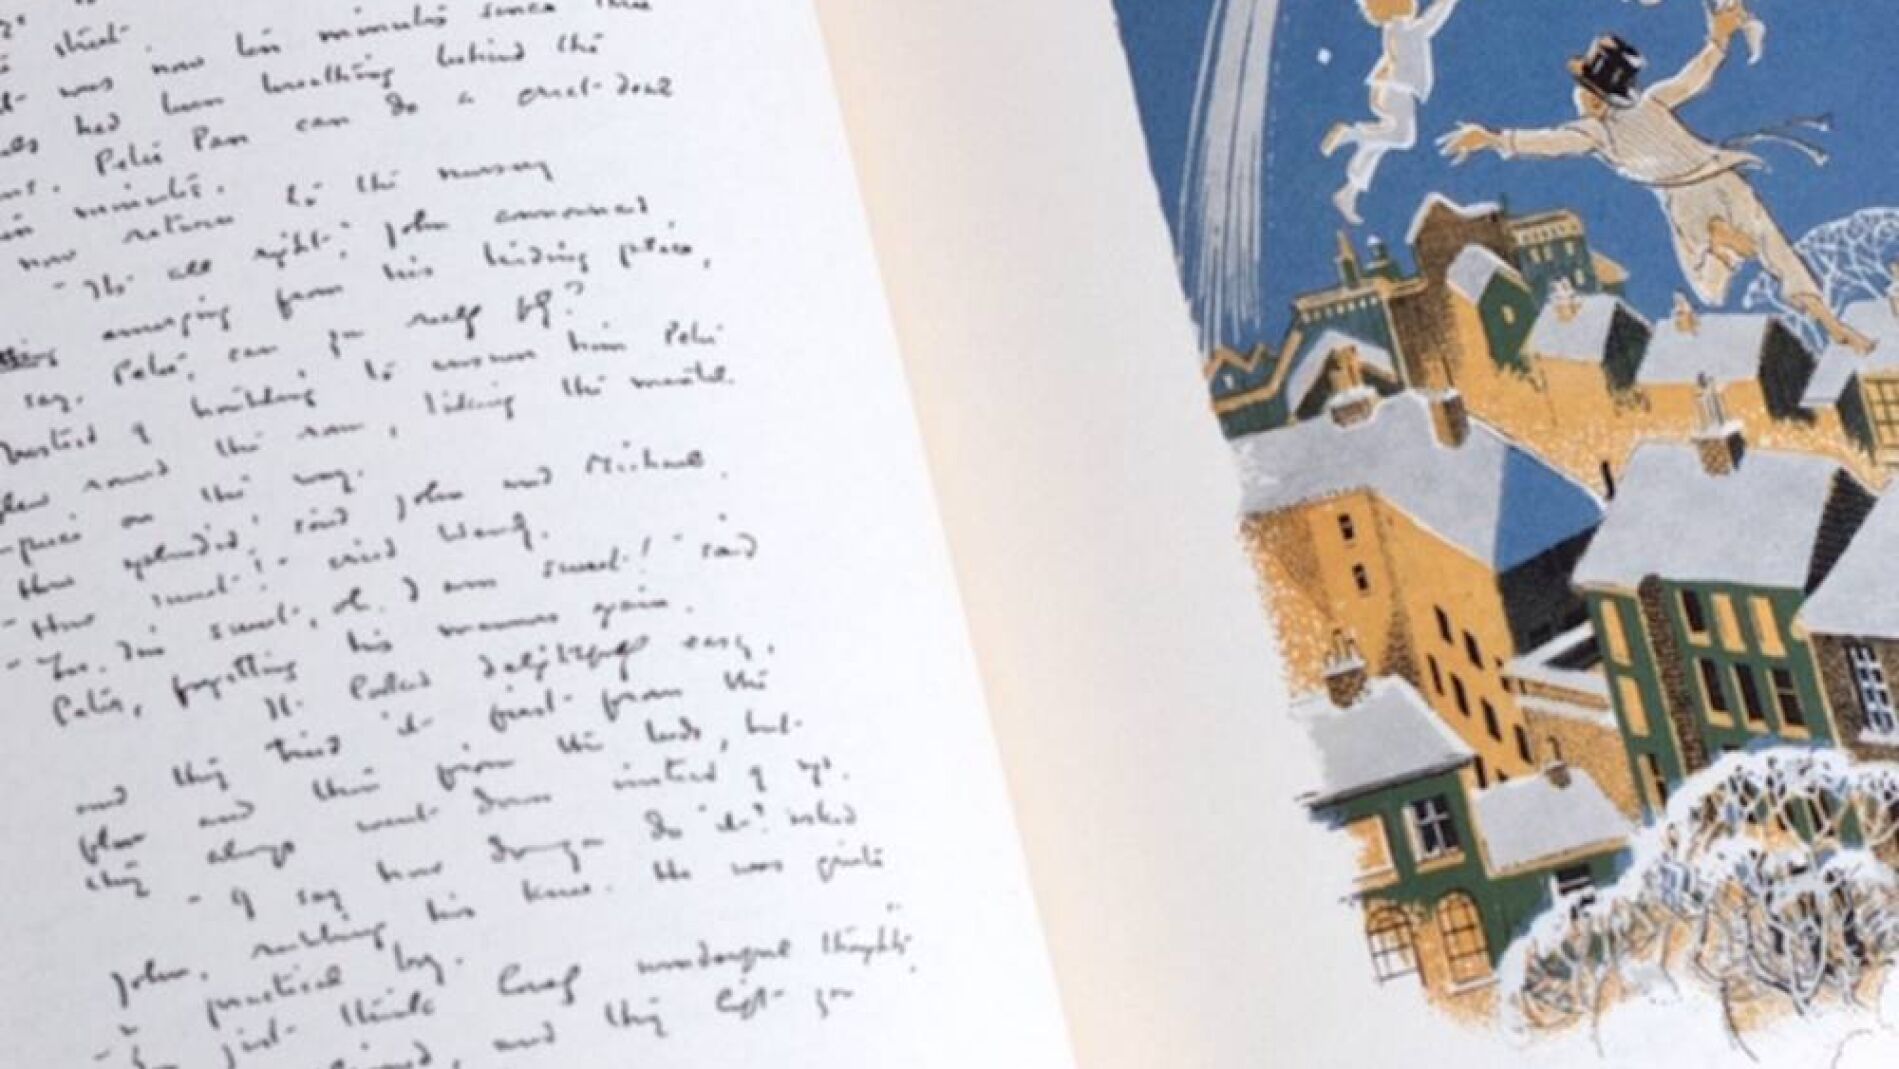 street
was now ten minutes since three
had been breathing behind the
Peter Pan can do a great deal
in minutes.
now return to the nursery
"It's all right," John announced
emerging from his hiding place,
say, Peter, can you really fly?"
Instead of troubling to answer him Peter
flew round the room, taking the mantel
-piece on the way.
"How splendid!" said John and Michael.
"How sweet!" cried Wendy.
"Yes, I'm sweet, oh, I am sweet!" said
Peter, forgetting his manners again.
It looked delightfully easy,
and they tried it first from the
floor and then from the beds, but
they always went down instead of up.
"I say how do you do it?" asked
John, rubbing his knee. He was quite
a practical boy.
"You just think lovely wonderful thoughts,"
and they lift you